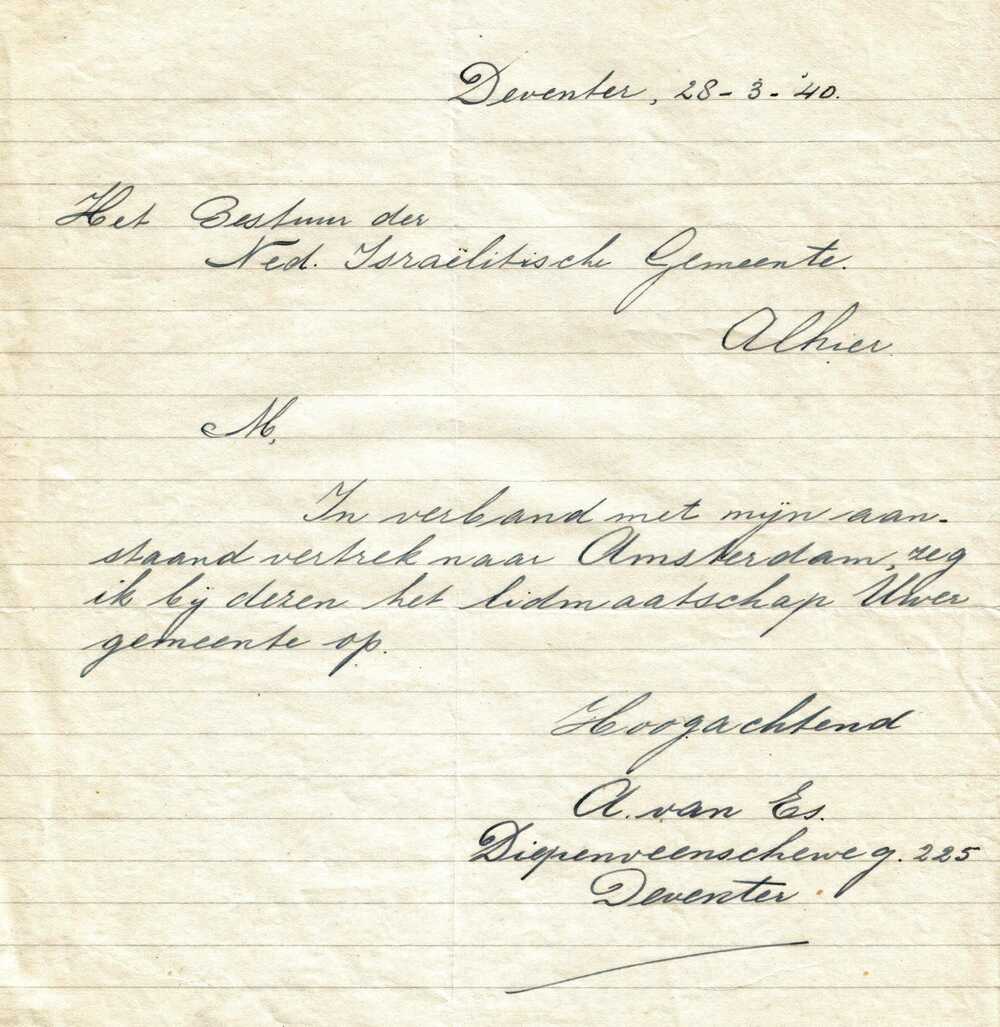 Deventer, 28-3-'40.
Het Bestuur der
Ned. Israëlitische Gemeente.
Alhier.
M,
In verband met mijn aan-
staand vertrek naar Amsterdam, zeg
ik bij dezen het lidmaatschap Uwer
gemeente op.
Hoogachtend
A. van Es.
Diepenveenscheweg. 225
Deventer